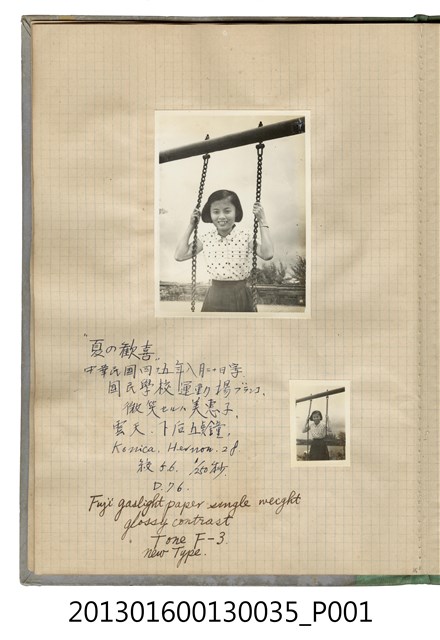 "夏の歡喜"
中華民國四十五年八月二日寫
國民學校 運動場ブランコ、
微笑せる 美惠子、
雲天、下后五點鐘、
Konica. Hexnon. 2.8.
絞 5.6. 1/250 秒
D.76.
Fuji gaslight paper. single weight
glossy contrast
Tone F-3.
new Type.
201301600130035_P001